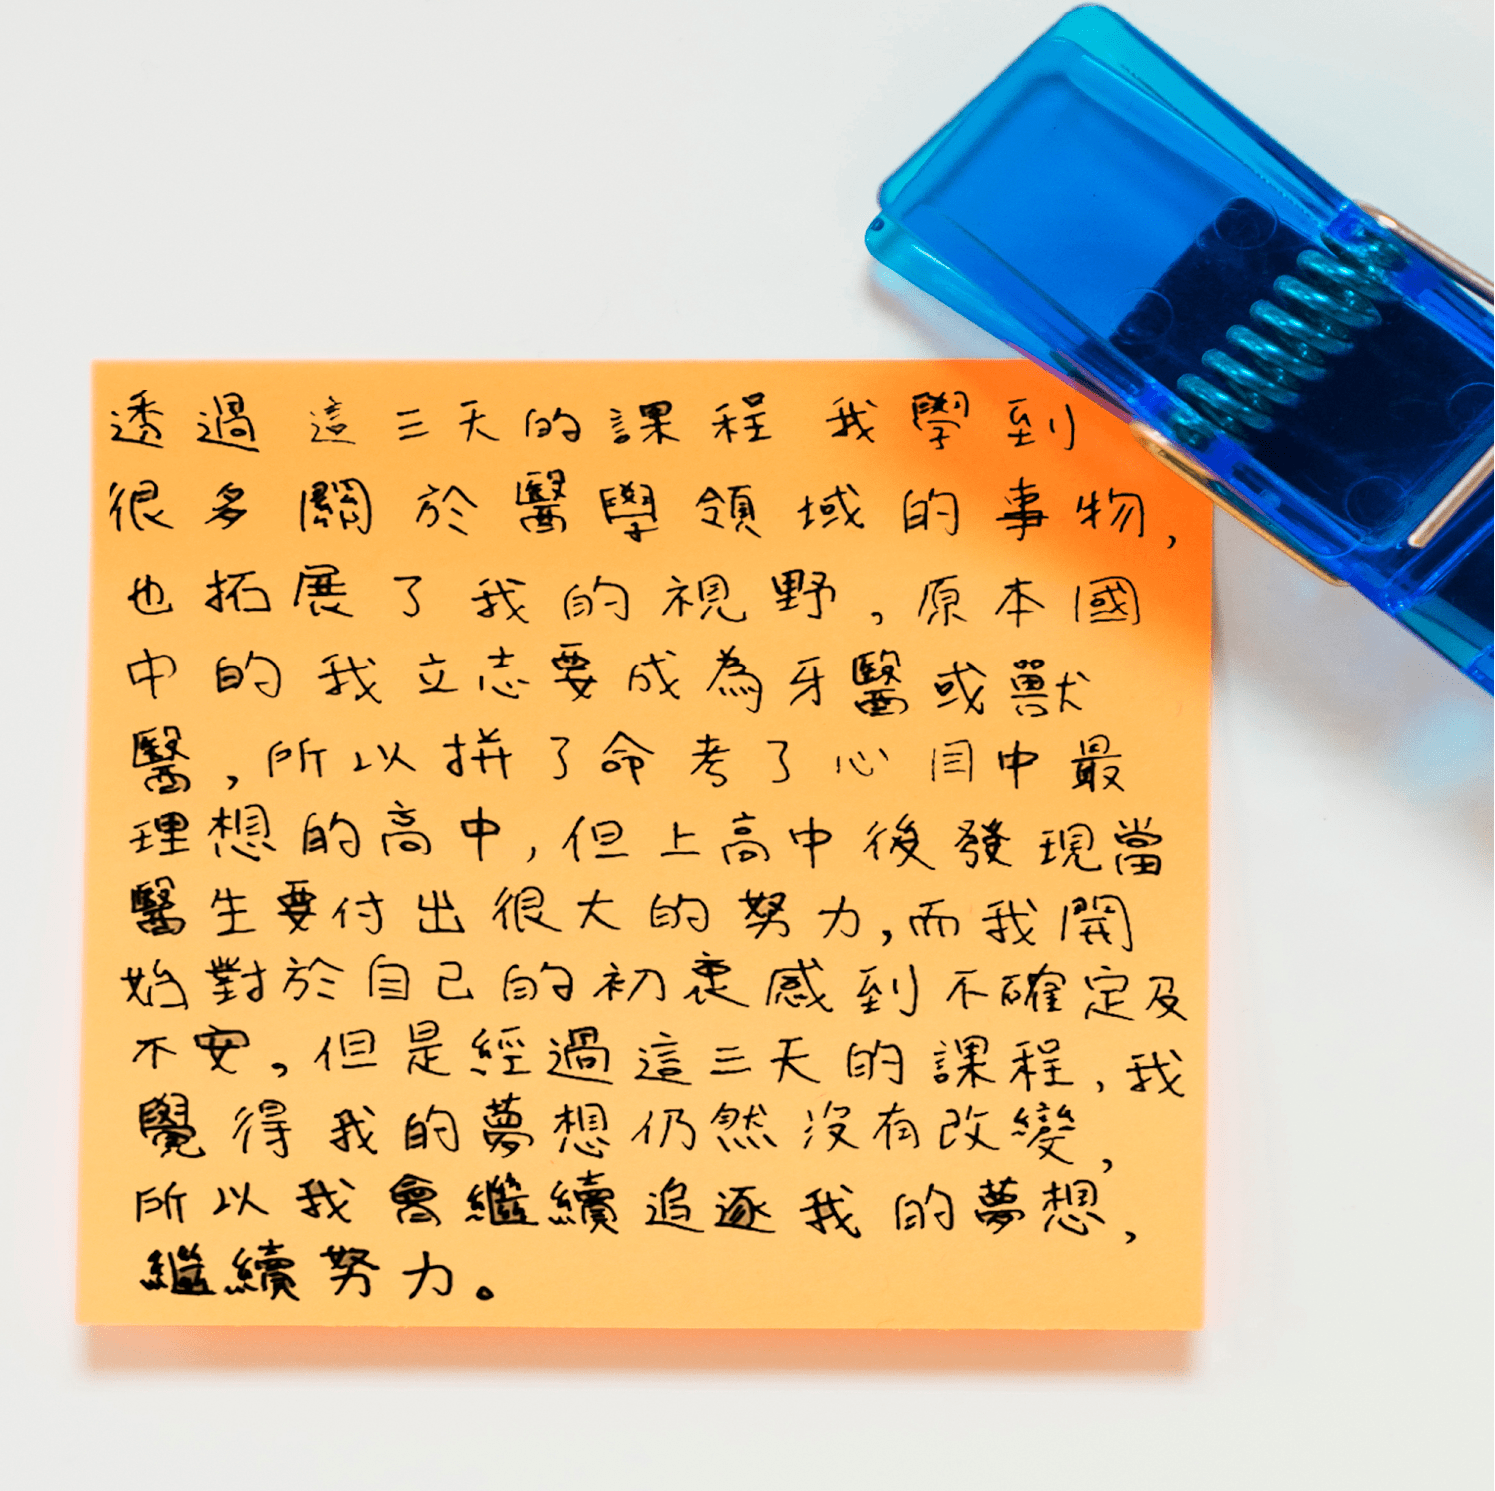 透過這三天的課程 我學到
很多關於醫學領域的事物,
也拓展了我的視野,原本國
中的我立志要成為牙醫或獸
醫,所以拼了命考了心目中最
理想的高中,但上高中後發現當
醫生要付出很大的努力,而我開
始對於自己的初衷感到不確定及
不安。但是經過這三天的課程,我
覺得我的夢想仍然沒有改變,
所以我會繼續追逐我的夢想,
繼續努力。